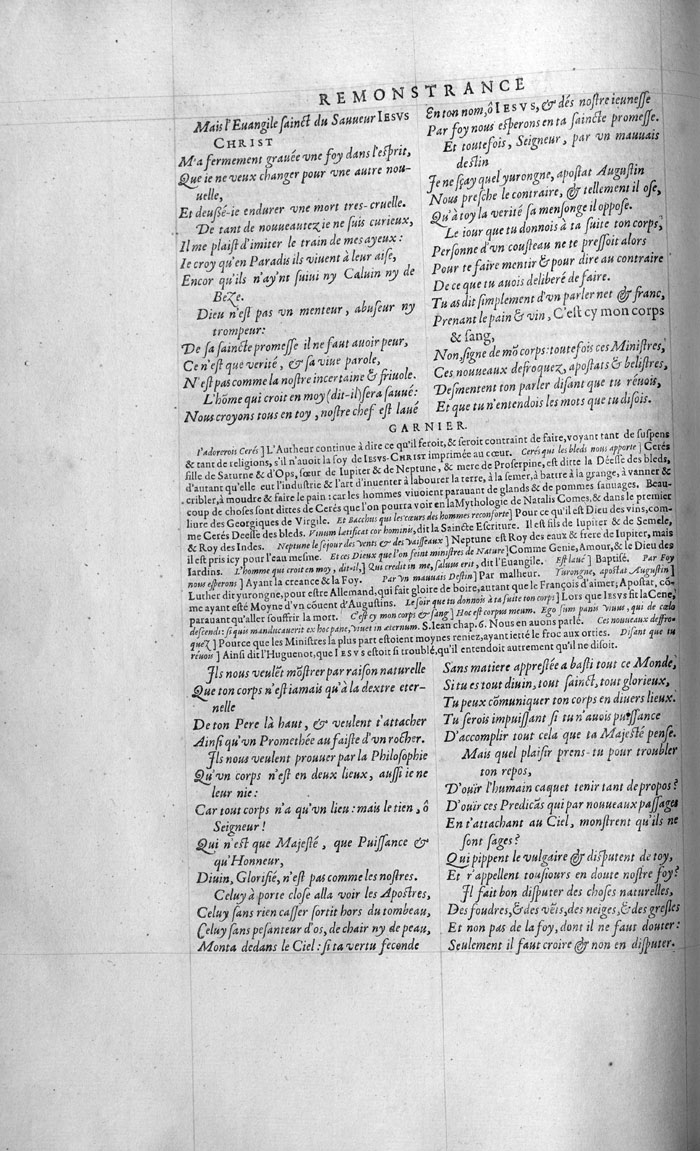 REMONSTRANCE
Mais l'Euangile sainct du Sauueur IESVS
CHRIST
M'a fermement grauée vne foy dans l'esprit,
Que ie ne veux changer pour vne autre nou-
uelle,
Et deußé-ie endurer vne mort tres-cruelle.
De tant de nouueautez ie ne suis curieux,
Il me plaist d'imiter le train de mes ayeux:
Ie croy qu'en Paradis ils viuent à leur aise,
Encor qu'ils n'ay'nt suiui ny Caluin ny de
Beze.
Dieu n'est pas vn menteur, abuseur ny
trompeur:
De sa saincte promesse il ne faut auoir peur,
Ce n'est que verité, & sa viue parole,
N'est pas comme la nostre incertaine & friuole.
L'hōme qui croit en moy (dit-il) sera sauué:
Nous croyons tous en toy, nostre chef est laué
En ton nom, ô IESVS, & dés nostre ieunesse
Par foy nous esperons en ta saincte promesse.
Et toutefois, Seigneur, par vn mauuais
destin
Je ne sçay quel yurongne, apostat Augustin
Nous presche le contraire, & tellement il ose,
Qu'à toy la verité sa mensonge il oppose.
Le iour que tu donnois à ta suite ton corps,
Personne d'vn cousteau ne te pressoit alors
Pour te faire mentir & pour dire au contraire
De ce que tu auois deliberé de faire.
Tu as dit simplement d'vn parler net & franc,
Prenant le pain & vin, C'est cy mon corps
& sang,
Non signe de mō corps: toutefois ces Ministres,
Ces nouueaux defroquez, apostats & belistres,
Desmentent ton parler disant que tu réuois,
Et que tu n'entendois les mots que tu disois.
GARNIER.
I'adorerois Cerés] L'Autheur continue à dire ce qu'il feroit, & seroit contraint de faire, voyant tant de suspens
& tant de religions, s'il n'auoit la foy de IESVS-CHRIST imprimée au cœur. Cerés qui les bleds nous apporte] Cerés
fille de Saturne & d'Ops, sœur de Iupiter & de Neptune, & mere de Proserpine, est ditte la Déesse des bleds,
d'autant qu'elle eut l'industrie & l'art d'inuenter à labourer la terre, à la semer, à battre à la grange, à vanner &
cribler, à moudre & faire le pain: car les hommes viuoient parauant de glands & de pommes sauuages. Beau-
coup de choses sont dittes de Cerés que l'on pourra voir en la Mythologie de Natalis Comes, & dans le premier
liure des Georgiques de Virgile. Et Bacchus qui les cœurs des hommes reconforte] Pour ce qu'il est Dieu des vins, com-
me Cerés Deesse des bleds. Vinum lætificat cor hominis, dit la Saincte Escriture. Il est fils de Iupiter & de Semele,
& Roy des Indes. Neptune le sejour des vents & des vaisseaux] Neptune est Roy des eaux & frere de Iupiter, mais
il est pris icy pour l'eau mesme. Et ces Dieux que l'on feint ministres de Nature] Comme Genie, Amour, & le Dieu des
Iardins. L'homme qui croit en moy, dit-il,] Qui credit in me, saluus erit, dit l'Euangile. Est laué] Baptisé. Par Foy
nous esperons] Ayant la creance & la Foy. Par vn mauuais Destin] Par malheur. Yurongne, apostat Augustin]
Luther dit yurongne, pour estre Allemand, qui fait gloire de boire, autant que le François d'aimer; Apostat, cō-
me ayant esté Moyne d'vn cōuent d'Augustins. Le soir que tu donnois à ta suite ton corps] Lors que IESVS fit la Cene,
parauant qu'aller souffrir la mort. C'est cy mon corps & sang] Hoc est corpus meum. Ego sum panis viuus, qui de cœlo
descendi: si quis manducauerit ex hoc pane, viuet in æternum. S. Iean chap. 6. Nous en auons parlé. Ces nouueaux defro-
quez] Pource que les Ministres la plus part estoient moynes reniez, ayant ietté le froc aux orties. Disant que tu
réuois] Ainsi dit l'Huguenot, que IESVS estoit si troublé, qu'il entendoit autrement qu'il ne disoit.
Ils nous veulēt mōstrer par raison naturelle
Que ton corps n'est iamais qu'à la dextre eter-
nelle
De ton Pere là haut, & veulent t'attacher
Ainsi qu'vn Promethée au faiste d'vn rocher.
Ils nous veulent prouuer par la Philosophie
Qu'vn corps n'est en deux lieux, aussi ie ne
leur nie:
Car tout corps n'a qu'vn lieu: mais le tien, ô
Seigneur!
Qui n'est que Majesté, que Puissance &
qu'Honneur,
Diuin, Glorifié, n'est pas comme les nostres.
Celuy à porte close alla voir les Apostres,
Celuy sans rien casser sortit hors du tombeau,
Celuy sans pesanteur d'os, de chair ny de peau,
Monta dedans le Ciel: si ta vertu feconde
Sans matiere apprestée a basti tout ce Monde,
Si tu es tout diuin, tout sainct, tout glorieux,
Tu peux cōmuniquer ton corps en diuers lieux.
Tu serois impuissant si tu n'auois puissance
D'accomplir tout cela que ta Majesté pense.
Mais quel plaisir prens-tu pour troubler
ton repos,
D'ouïr l'humain caquet tenir tant de propos?
D'ouïr ces Predicās qui par nouueaux passages
En t'attachant au Ciel, monstrent qu'ils ne
sont sages?
Qui pippent le vulgaire & disputent de toy,
Et r'appellent tousiours en doute nostre foy?
Il fait bon disputer des choses naturelles,
Des foudres, & des vēts, des neiges, & des gresles
Et non pas de la foy, dont il ne faut douter:
Seulement il faut croire & non en disputer.